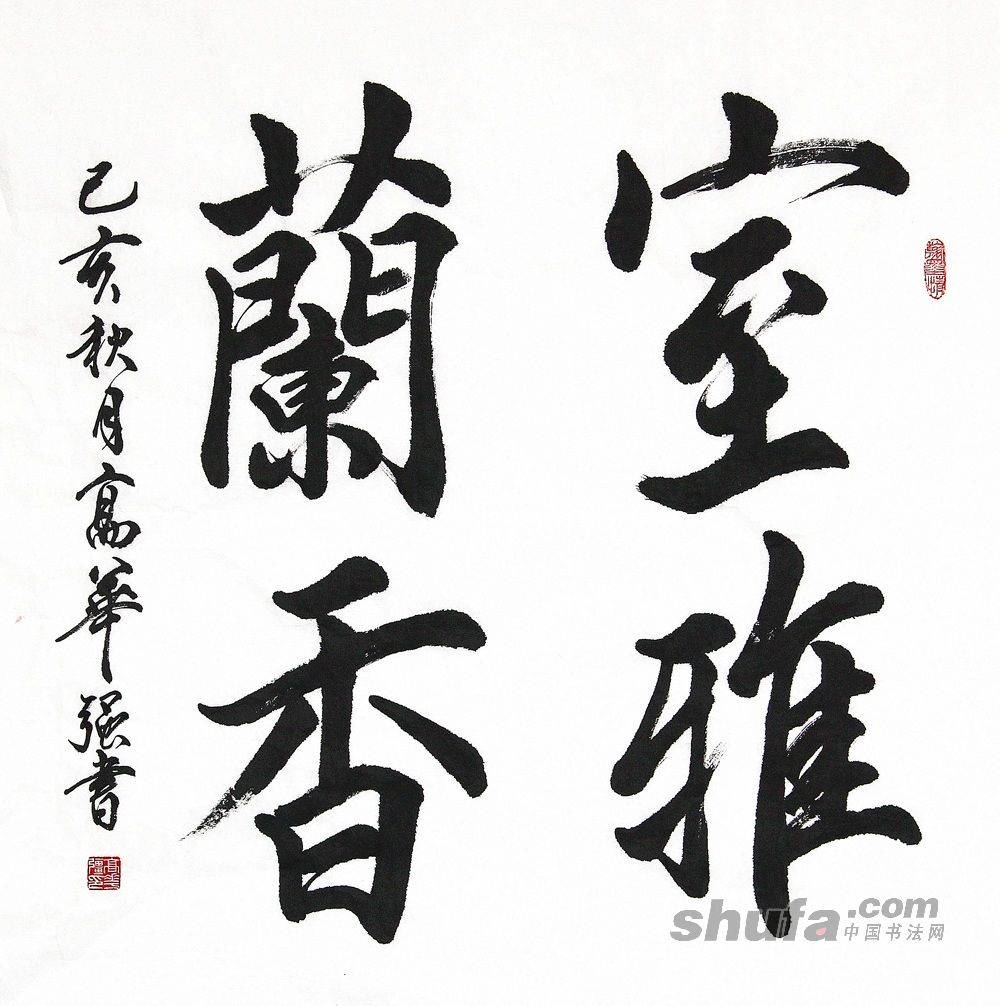 室雅
蘭香
己亥秋月高華强書
shufa.com
中国书法网